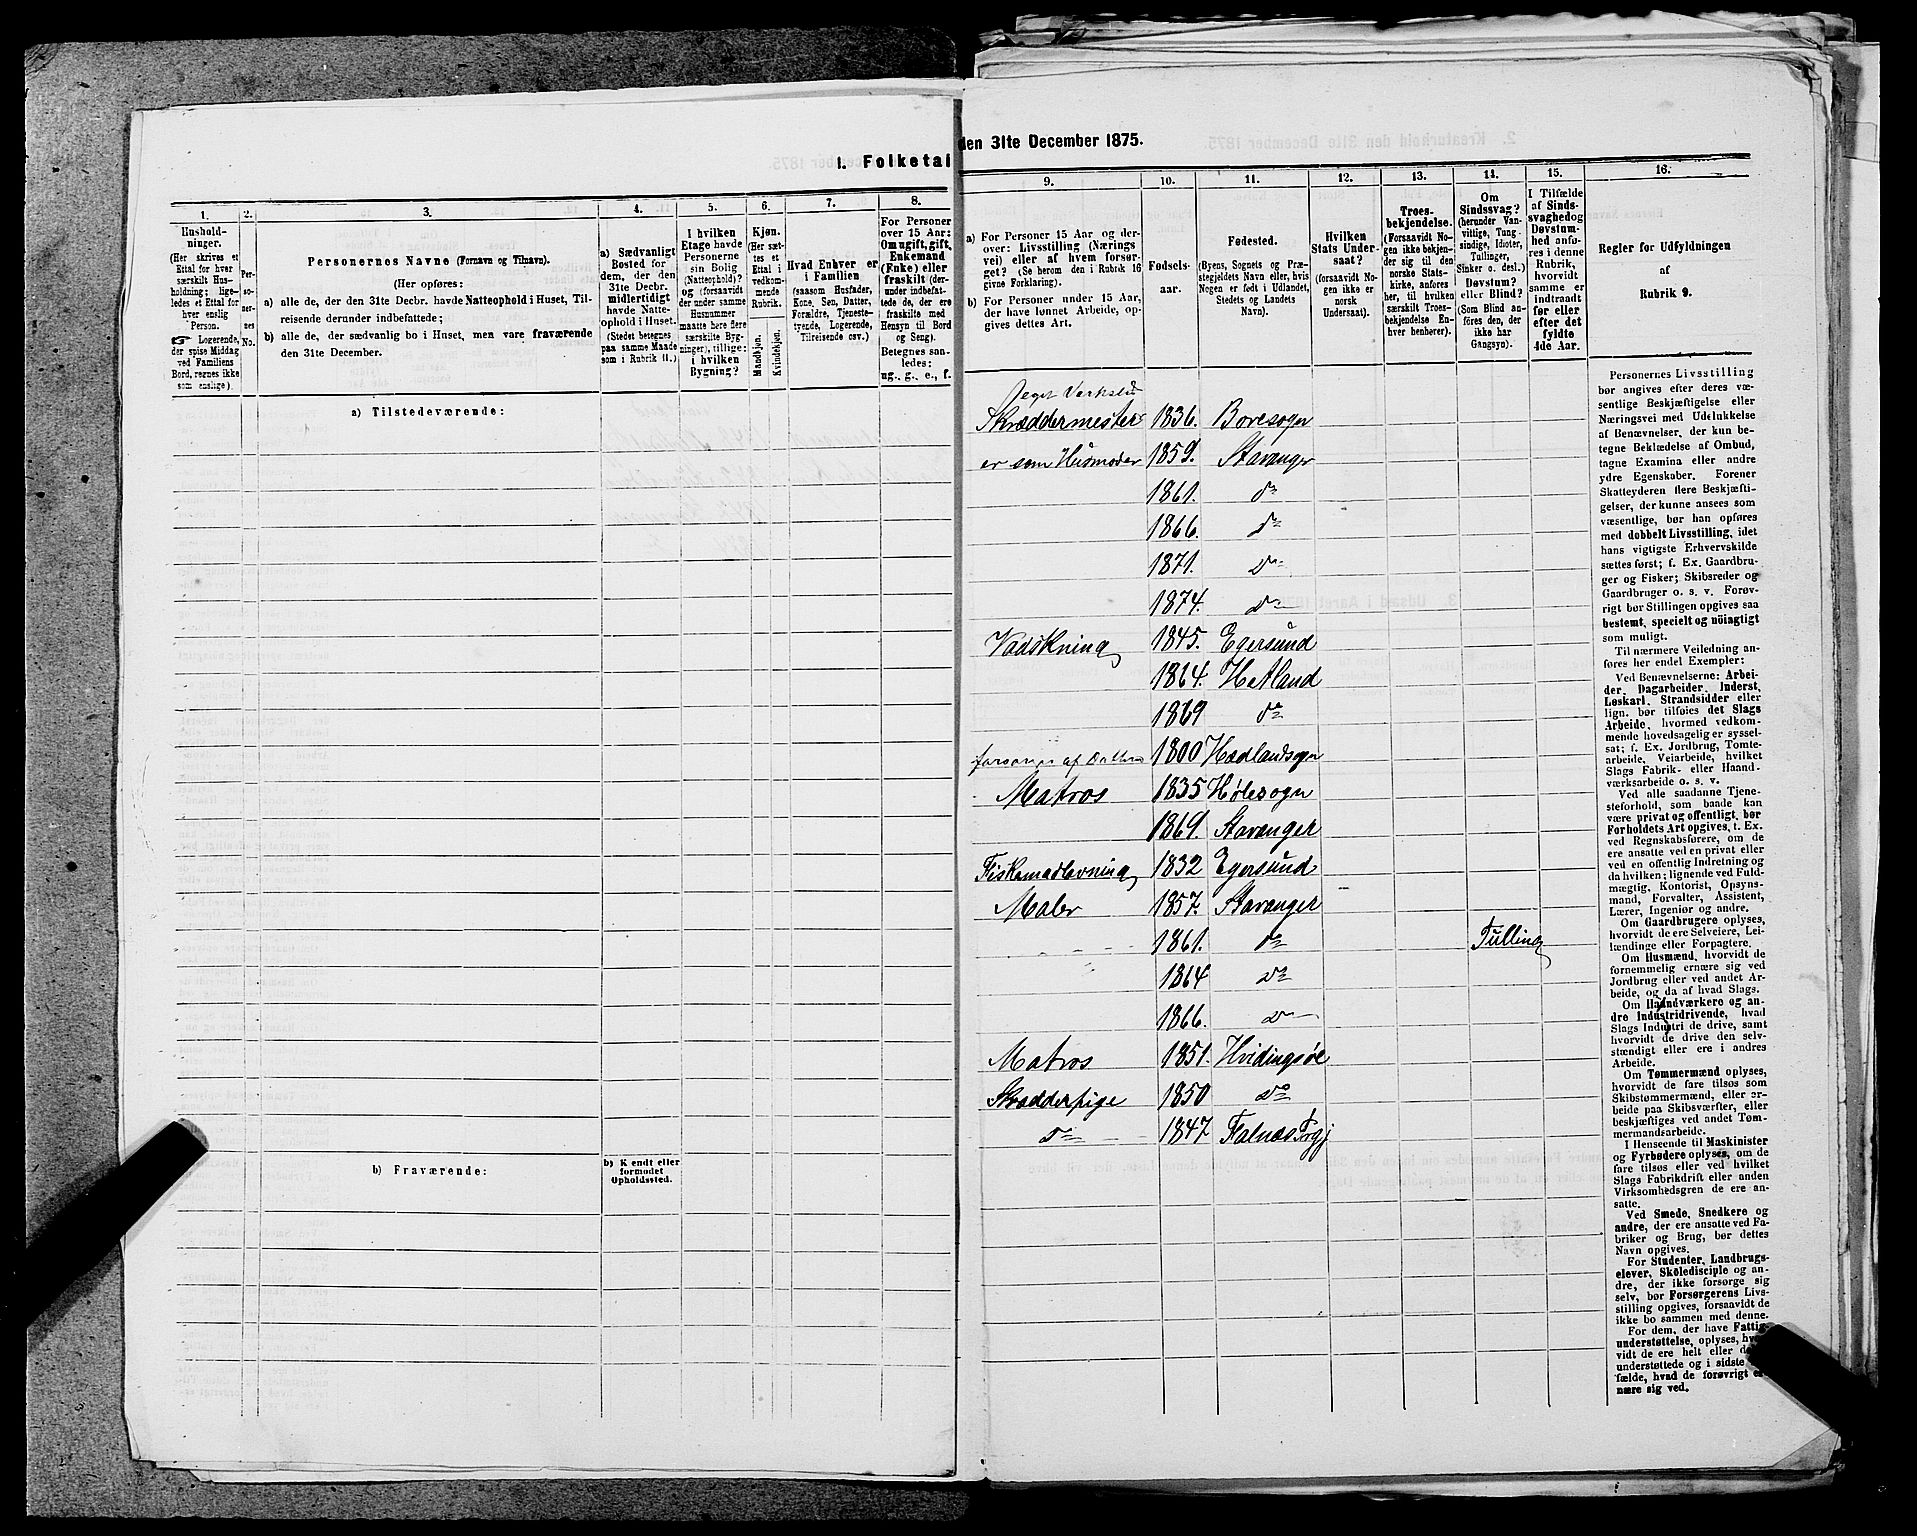 1. Folketal
1.
2.
3.
4.
5.
6.
7.
8.
Hushold-
ninger.
(Her skrives et
Ettal for hver
særskilt Hus-
holdning; lige-
ledes et Ettal for
hver enslig
Person.
☞ Logerende,
der spise Middag
ved Familiens
Bord, regnes ikke
som enslige).
Per-
so-
ner-
nes
No.
Personernes Navne (Fornavn og Tilnavn).
(Her opføres:
a) alle de, der den 31te Decbr. havde Natteophold i Huset, Til-
reisende derunder indbefattede;
b) alle de, der sædvanlig bo i Huset, men vare fraværende
den 31te December.
a) Sædvanligt
Bosted for
dem, der den
31te Decbr.
midlertidigt
havde Natte-
ophold i Huset.
(Stedet betegnes
paa samme Maade
som i Rubrik 11.)
I hvilken
Etage havde
Personerne
sin Bolig
(Natteophold)?
og (forsaavidt
der under samme
Husnummer
maatte høre flere
særskilte Byg-
ninger), tillige:
i hvilken
Bygning?
Kjøn.
(Her sæt-
tes et
Ettal i
vedkom-
mende
Rubrik.
Mandkjøn.
Kvindekjøn.
Hvad Enhver er
i Familien
(saasom Husfader,
Kone, Søn, Datter,
Forældre, Tjeneste-
tyende, Logerende,
Tilreisende osv.)
For Personer
over 15 Aar:
Om ugift, gift,
Enkemand
(Enke) eller
fraskilt (der-
under indbefat-
tede de, der ere
fraskilte med
Hensyn til Bord
og Seng).
Betegnes saa-
ledes:
ug., g., e., f.
a) Tilstedeværende:
b) Fraværende:
b) Kjendt eller
formodet
Opholdssted.
den 31te December 1875.
9.
10.
11.
12.
13.
14.
15.
16.
a) For Personer 15 Aar og der-
over: Livsstilling (Nærings
vei) eller af hvem forsør-
get? (Se herom den i Rubrik 16
givne Forklaring).
b) For Personer under 15 Aar,
der have lønnet Arbeide, op-
gives dettes Art.
Fødsels-
aar.
Fødested.
(Byens, Sognets og Præ-
stegjeldets Navn eller, hvis
Nogen er født i Udlandet,
Stedets og Landets
Navn).
Hvilken
Stats Under-
saat?
(forsaavidt No-
gen ikke er
norsk
Undersaat).
Troes-
bekjendelse.
(Forsaavidt No-
gen ikke bekjen-
der sig til den
norske Stats-
kirke, anføres
her, til hvilken
særskilt Troes-
bekjendelse En-
hver benhører).
Om
Sindssvag?
(herunder Van-
vittige, Tung-
sindige, Idioter,
Tullinger,
Sinker o. desl.)
Døvstum?
eller Blind?
(Som Blind an-
føres den, der
ikke har
Gangsyn).
I Tilfælde
af Sinds-
svaghed og
Døvstum-
hed anfø-
res i denne
Rubrik,
hvorvidt
samme er
indtraadt
før eller
efter det
fyldte
4de Aar.
Regler for Udfyldningen
af
Rubrik 9.
eget
Skræddermester 1836. Boresogn
er som Husmoder 1859. Stavanger
1861. do
1866. do
1871. do
1874. do
Vadskning 1845. Egersund
1864. Hetland
1869 do
af 1800
Matros 1835 Hølesogn
1869. Stavanger
Fiskemadlavning 1832 Egersund
Maler 1857. Stavanger
1861. do Tulling
1864 do
1866. do
Matros 1851. Hvidingsøe
Skrædderpige 1850 do
do 1847 Falnæs
Personernes Livsstilling
bør angives efter deres væ-
sentlige Beskjæftigelse eller
Næringsvei med Udelukkelse
af Benævnelser, der kun be-
tegne Beklædelse af Ombud,
tagne Examina eller andre
ydre Egenskaber. Forener
Skatteyderen flere Beskjæfti-
gelser, der kunne ansees som
væsentlige, bør han opføres
med dobbelt Livsstilling, idet
hans vigtigste Erhvervskilde
sættes først; f. Ex. Gaardbru-
ger og Fisker; Skibsreder og
Gaardbruger o. s. v. Forøv-
rigt bør Stillingen opgives saa
bestemt, specielt og nöiagtigt
som muligt.
Til nærmere Veiledning an-
føres her endel Exempler:
Ved Benævnelserne: Arbei-
der, Dagarbeider, Inderst,
Løskarl, Strandsidder eller
lign. bør tilføies det Slags
Arbeide, hvormed vedkom-
mende hovedsagelig er syssel-
sat; f. Ex. Jordbrug, Tomte-
arbeide, Veiarbeide, hvilket
Slags Fabrik- eller Haand-
værksarbeide o. s. v.
Ved alle saadanne Tjene-
steforhold, som baade kan
være privat og offentligt, bør
Forholdets Art opgives, f. Ex.
ved Regnskabsførere, om de
ere ansatte ved en privat eller
ved en offentlig Indretning og
da hvilken; lignende ved Fuld-
mægtig, Kontorist, Opsyns-
mand, Forvalter, Assistent,
Lærer, Ingeniør og andre.
Om Gaardbrugere oplyses,
hvorvidt de ere Selveiere, Lei-
lændinge eller Forpagtere.
Om Husmænd, hvorvidt de
fornemmelig ernære sig ved
Jordbrug eller ved andet Ar-
beide, og da af hvad Slags.
Om Haandværkere og an-
dre Industridrivende, hvad
Slags Industri de drive, samt
hvorvidt de drive den selv-
stændigt eller ere i andres
Arbeide.
Om Tømmermænd oplyses,
hvorvidt de fare tilsøs som
Skibstømmermænd, eller ar-
beide paa Skibsværfter, eller
beskjæftiges ved andet Tøm-
mermandsarbeide.
I Henseende til Maskinister
og Fyrbødere oplyses, om de
fare tilsøs eller ved hvilket
Slags Fabrikdrift eller anden
Virksomhedsgren de ere an-
satte.
Ved Smede, Snedkere og
andre, der ere ansatte ved Fa-
briker og Brug, bør dettes
Navn opgives.
For Studenter, Landbrugs-
elever, Skoledisciple og an-
dre, der ikke forsørge sig
selv, bør Forsørgerens Livs-
stilling opgives, forsaavidt de
ikke bo sammen med denne.
For dem, der have Fattig-
understøttelse, oplyses,
vidt de ere helt eller
understøttede og i sidste
fælde, hvad de forøvrigt
nære sig ved.